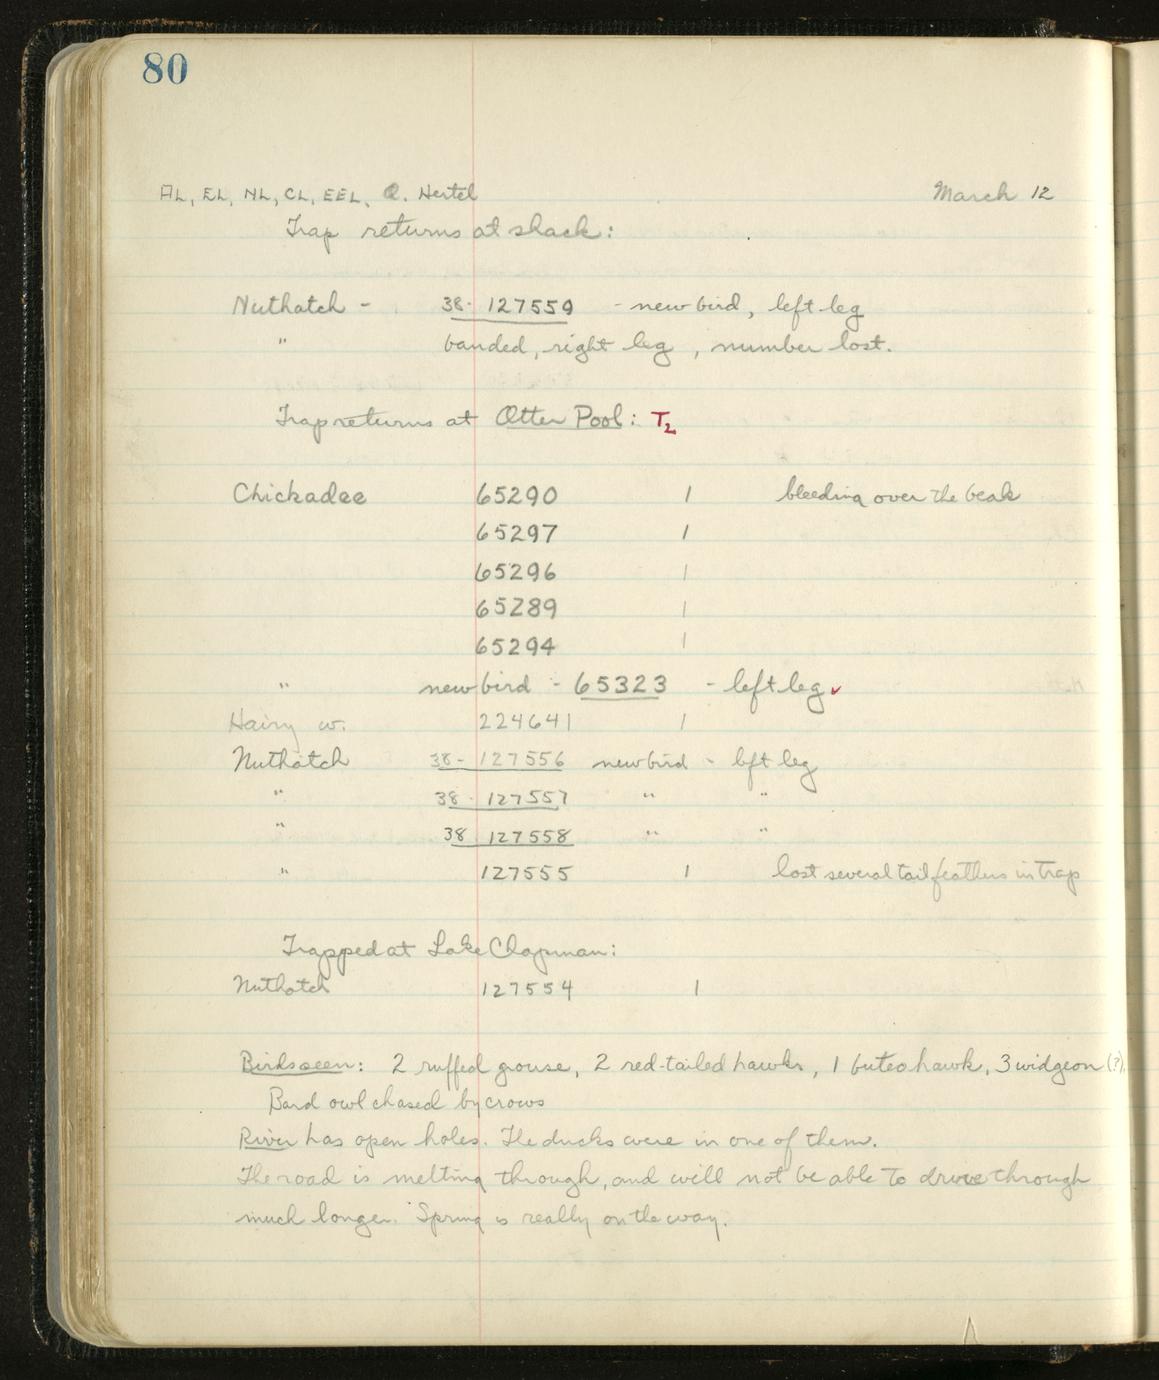 80
AL, EL, NL, CL, EEL, Q. Hertel March 12
Trap returns at shack:
Nuthatch - 38- 127559 - new bird, left leg
" banded, right leg, number lost.
Trap returns at Otter Pool: T2
Chickadee 65290 1 bleeding over the beak
65297 1
65296 1
65289 1
65294 1
" new bird - 65323 - left leg ✓
Hairy w. 224641 1
Nuthatch 38- 127556 new bird - left leg
" 38- 127557 " "
" 38 127558 " "
" 127555 1 lost several tail feathers in trap
Trapped at Lake Chapman:
Nuthatch 127554 1
Birds seen: 2 ruffed grouse, 2 red-tailed hawks, 1 buteo hawk, 3 widgeon (?),
Bard owl chased by crows
River has open holes. The ducks were in one of them.
The road is melting through, and will not be able to drive through
much longer. Spring is really on the way.